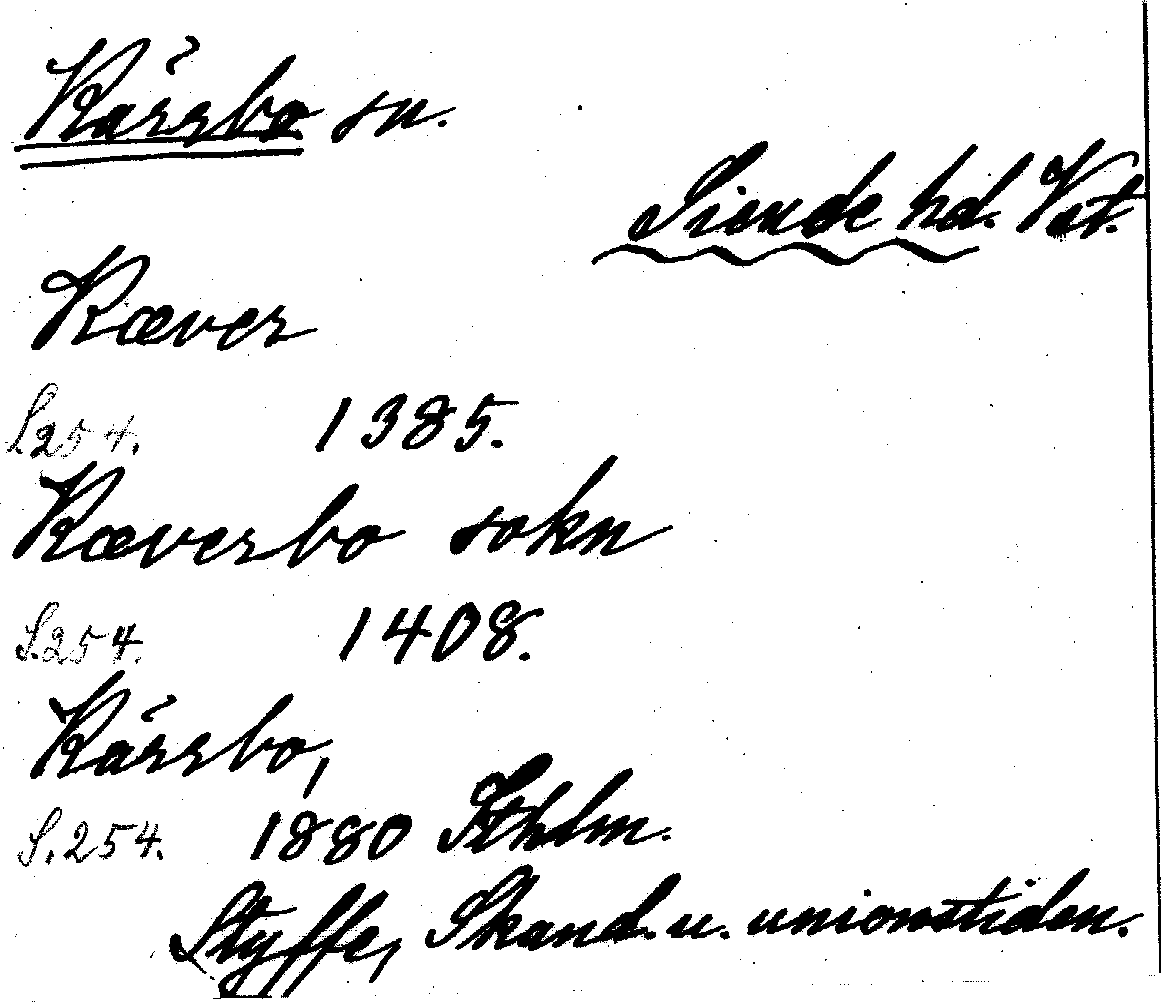 Kärrbo sn.
Siende hd. Vst.
Kæver
S. 254. 1385.
Kæverbo sokn
S. 254. 1408.
Kärrbo,
S. 254. 1880 Sthlm.
Styffe, Skand. u. unionstiden.